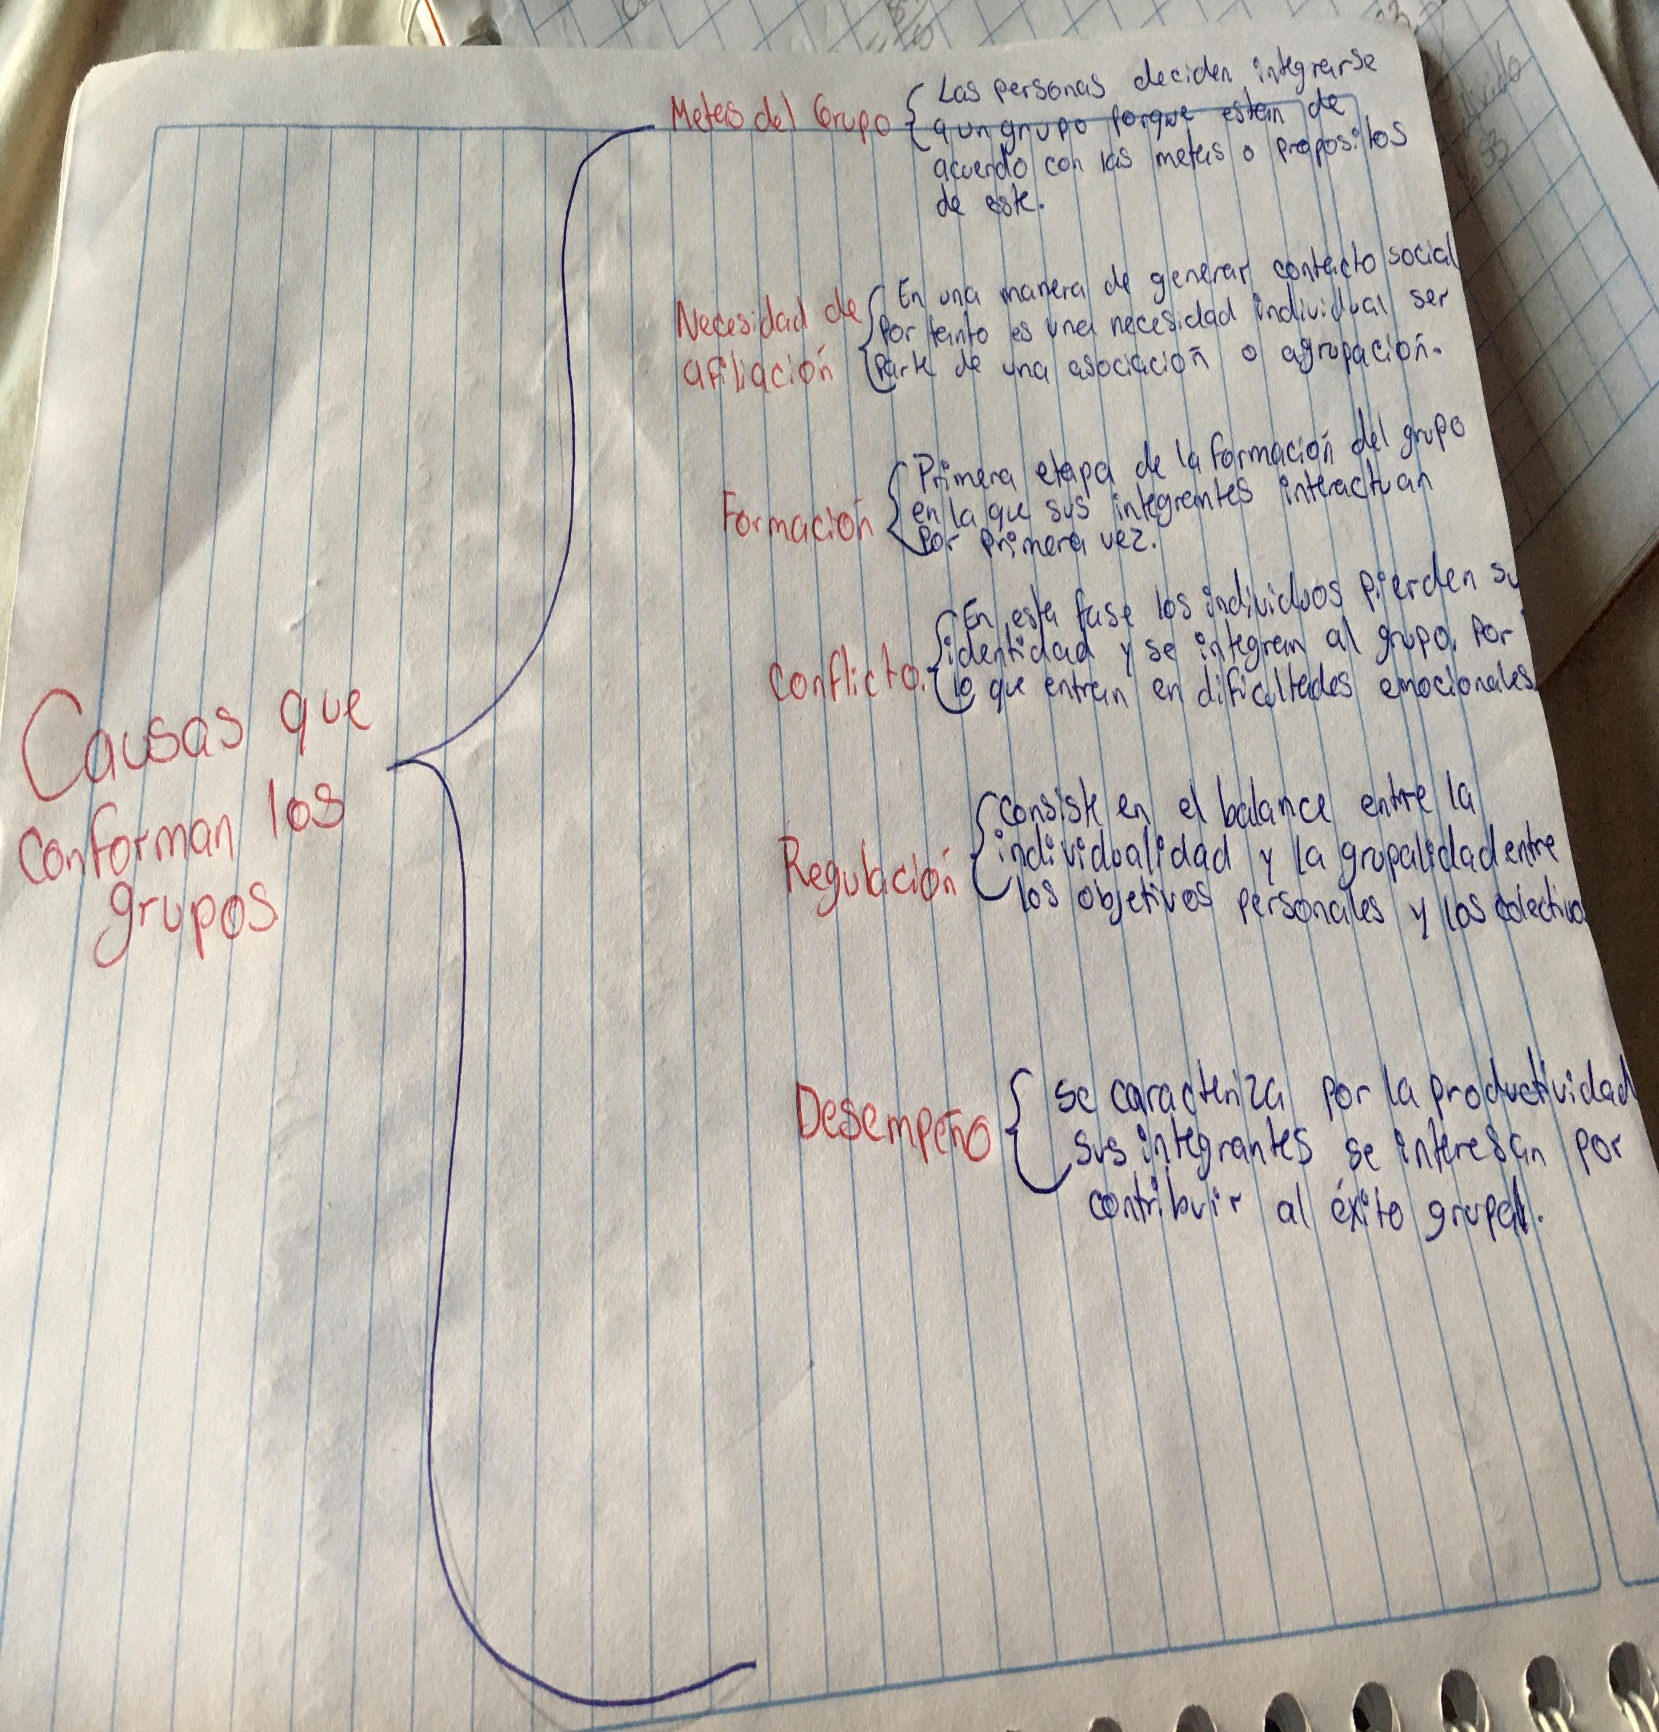 Causas que
conforman los
grupos
Metas del Grupo
Las personas deciden integrarse
a un grupo porque estan de
acuerdo con las metas o propositos
de este.
Necesidad de
afiliación
En una manera de generar contacto social
Por tanto es una necesidad individual ser
parte de una asociación o agrupación.
Formación
Primera etapa de la formación del grupo
en la que sus integrantes interactuan
Por primera vez.
Conflicto.
En esta fase los individuos pierden su
identidad y se integran al grupo, Por
lo que entran en dificultades emocionales
Regulación
consiste en el balance entre la
individualidad y la grupalidad entre
los objetivos personales y los colectivo
Desempeño
se caracteriza por la productividad
sus integrantes se interesan por
contribuir al éxito grupal.